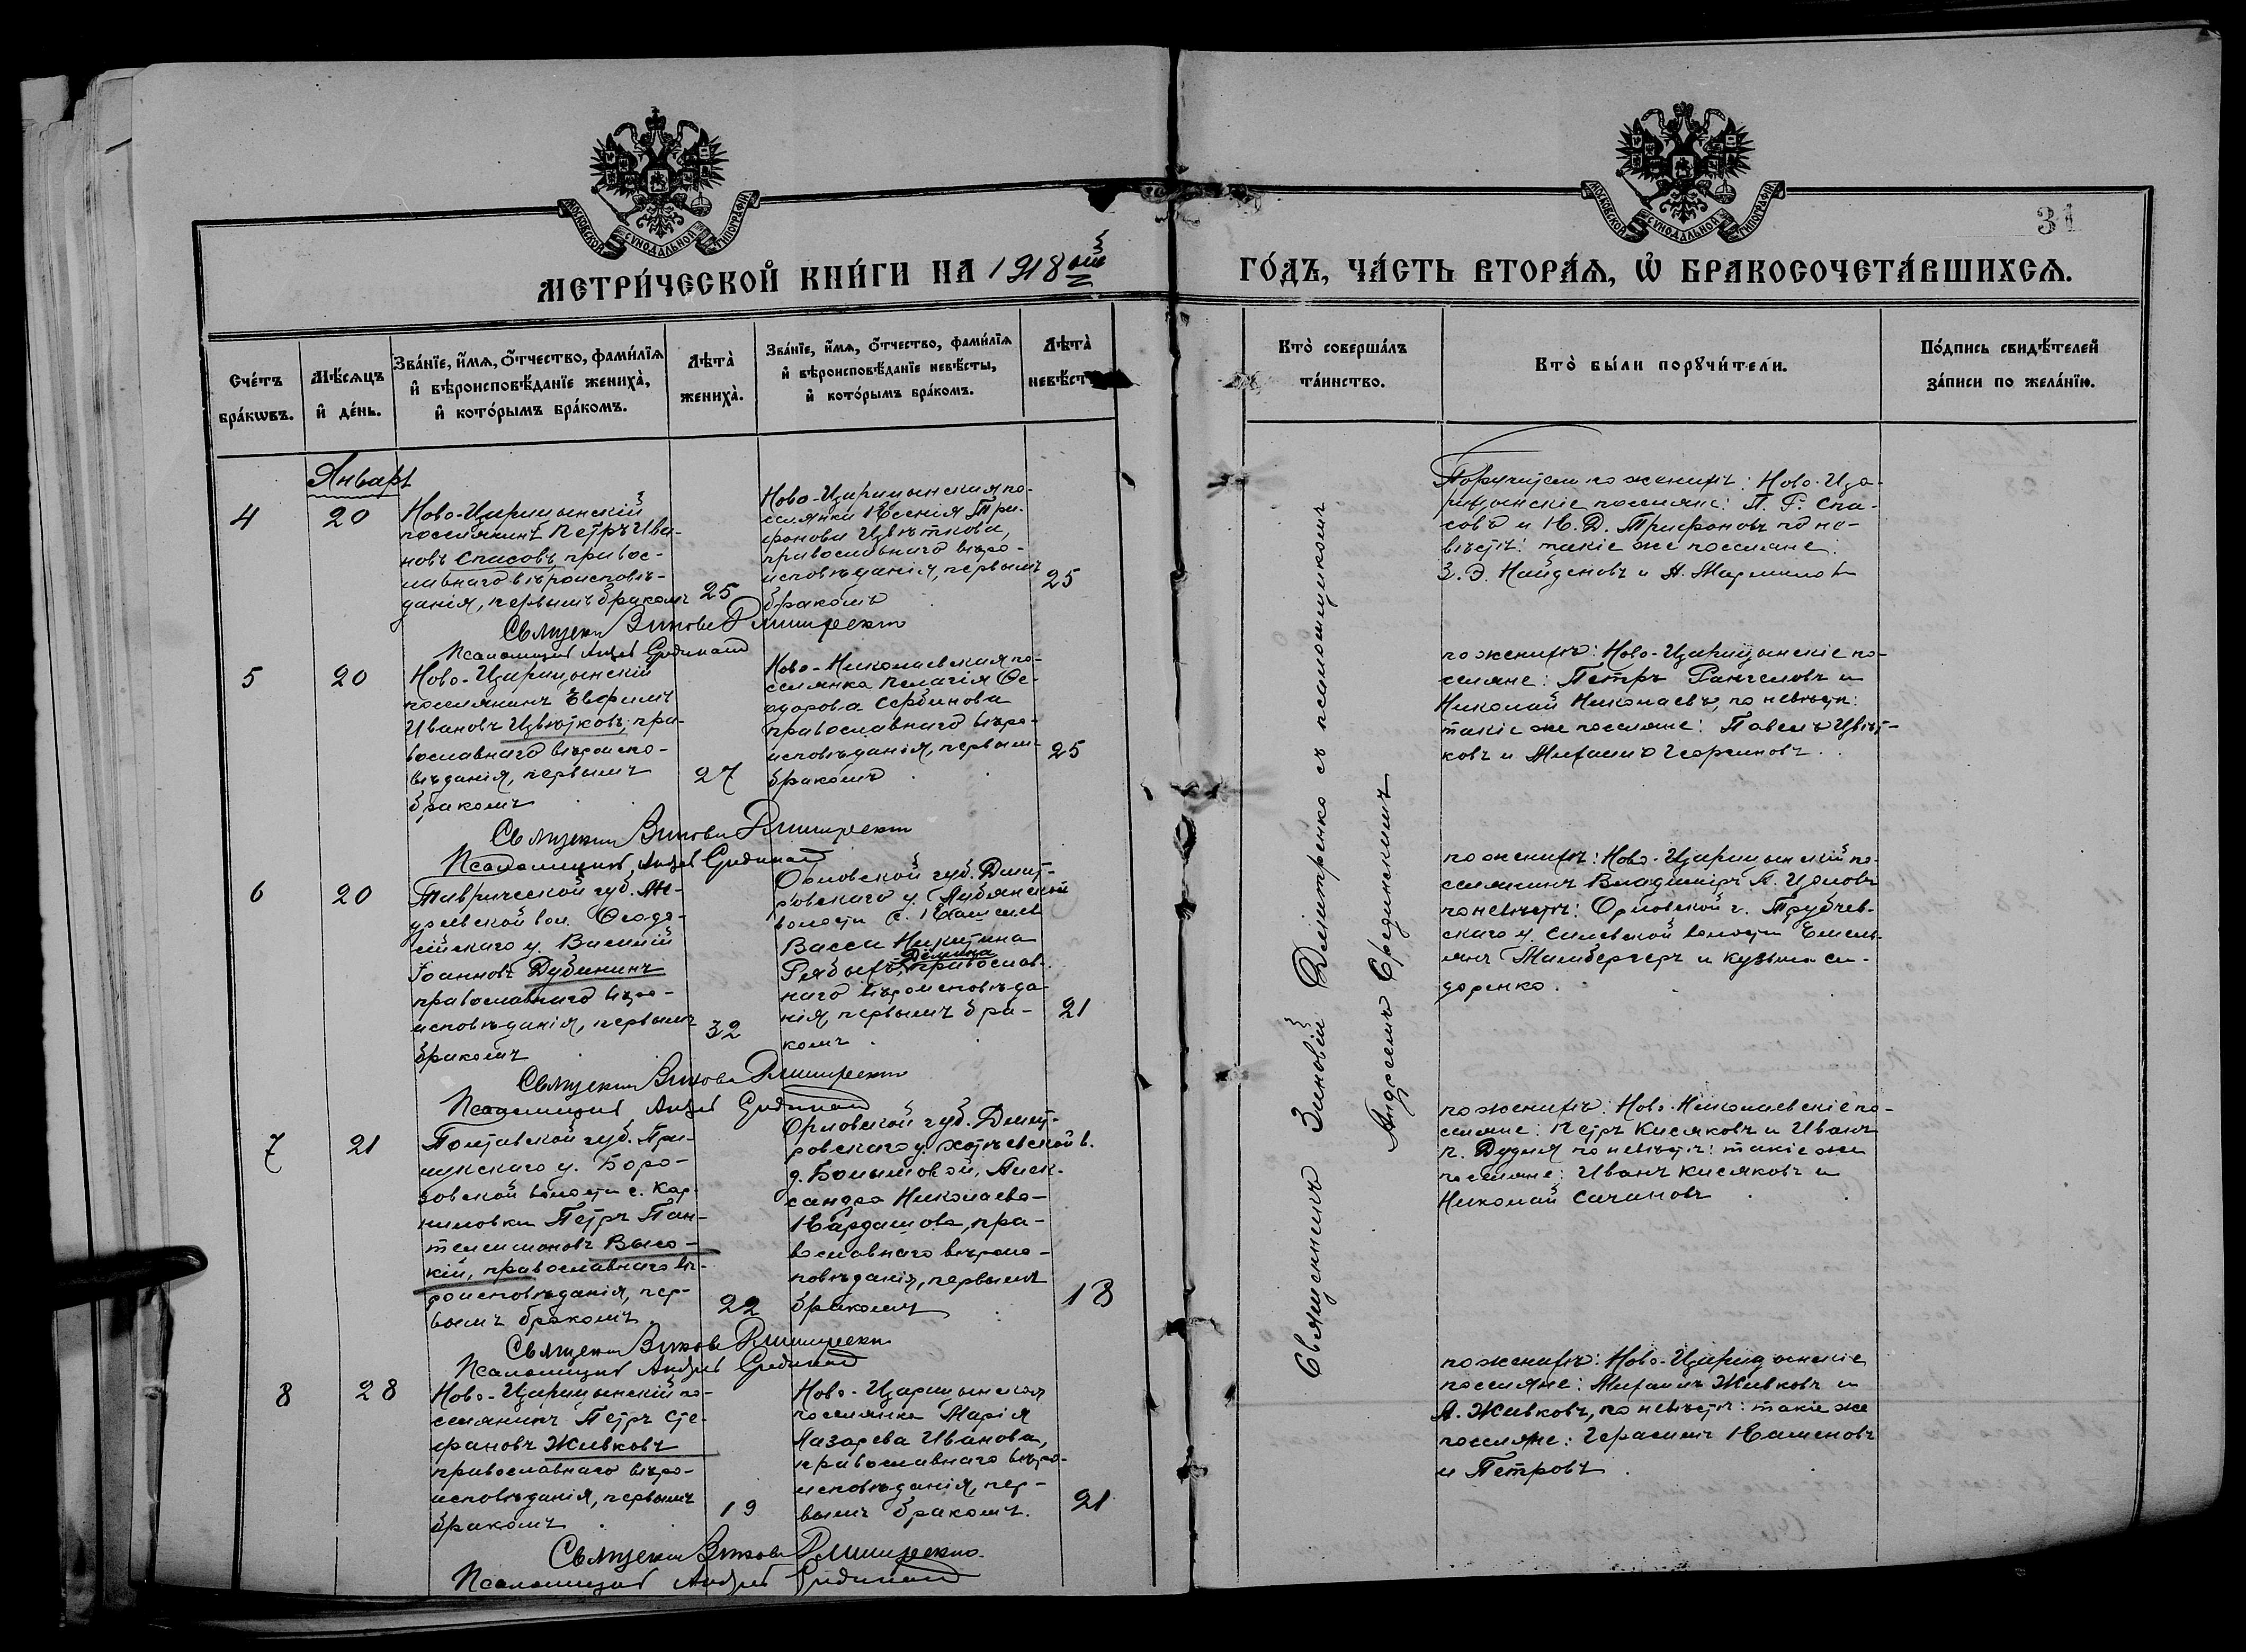 МОСКОВСКОЙ СѴНОДАЛЬНОЙ ТИПОГРАФІИ
МОСКОВСКОЙ СѴНОДАЛЬНОЙ ТИПОГРАФІИ
31
МЕТРИ́ЧЕСКОЙ КНИ́ГИ НА 1918ый
ГО́ДЪ, ЧА́СТЬ ВТОРА́Ѧ, Ѿ БРАКОСОЧЕТА́ВШИХСѦ.
Сче́тъ бра́кѡвъ.
Мѣ́сѧцъ и҆ де́нь.
Зва́нїе, и҆́мѧ, ѻ҆́тчество, фами́лїѧ
и҆ вѣроисповѣ́данїе жениха̀,
и҆ кото́рымъ бра́комъ.
Лѣта̀ жениха̀.
Зва́нїе, и҆́мѧ, ѻ҆́тчество, фами́лїѧ
и҆ вѣроисповѣ́данїе невѣ́сты,
и҆ кото́рымъ бра́комъ.
Лѣта̀ невѣ́ст
Кто̀ соверша́лъ
та́инство.
Кто̀ бы́ли порꙋчи́тели.
По́дпись свидѣ́телей
за́писи по жела́нїю.
Январь
4
20
Ново-Царицынскій
поселянинъ Петръ Ива-
новъ Спасовъ, правос-
лавнаго вѣроисповѣ-
данія, первымъ бракомъ
25
Ново-Царицынская по-
селянка Ксенія Три-
фонова Цвѣткова,
православнаго вѣро-
исповѣданія, первымъ
бракомъ
25
Поручители по женихѣ: Ново-Ца-
рицынскіе поселяне: П. Г. Спа-
совъ и К. Д. Трифоновъ по не-
вѣстѣ: такіе же поселяне:
З. Э. Найденовъ и Н.
Священникъ Зиновій Дмитренко
Псаломщикъ Андрей Срединскій
5
20
Ново-Царицынскій
поселянинъ Ѣвфимъ
Ивановъ Цвѣтковъ, пра-
вославнаго вѣроиспо-
вѣданія, первымъ
бракомъ
27
Ново-Николаевская по-
селянка Пелагія Ѳе-
одорова Сербинова
православнаго вѣро-
исповѣданія, первым-
бракомъ
25
по женихѣ: Ново-Царицынскіе по-
селяне: Петръ Рангеловъ и
Николай Николаевъ, по невѣстѣ:
такіе же поселяне: Павелъ Цвѣт-
ковъ и Михаилъ Георгиновъ.
Священникъ Зиновій Дмитренко
Псаломщикъ Андрей Срединскій
6
20
Таврической губ. Ан-
дреевской вол. Ѳеодо-
сійскаго у. Василій
Іоанновъ Дубининъ
православнаго вѣро-
исповѣданія, первымъ
бракомъ
32
Орловской губ. Дмит-
ровскаго у. Лубянской
волости с.
Васса Никитина
Демина
Рябыхъ, православ-
наго вѣроисповѣда-
нія, первымъ бра-
комъ.
21
по женихѣ: Ново-Царицынскій по-
селянинъ Владиміръ П. Цоновъ
по невѣстѣ: Орловской г. Трубчев-
скаго у. волости Емель-
янъ и Кузьма Си-
доренко.
Священникъ Зиновій Дмитренко
Псаломщикъ Андрей Срединскій
7
21
Полтавской губ. При-
лукскаго у. Боро-
зовской волости с. Кор-
ниловки Петръ Пан-
телеимоновъ Высо-
кій, православнаго вѣ-
роисповѣданія, пер-
вымъ бракомъ.
22
Орловской губ. Дмит-
ровскаго у. Хотѣевской в.
д. Большовой, Алек-
сандра Николаева-
Кардашова, пра-
вославнаго вѣроис-
повѣданія, первымъ
бракомъ
18
по женихѣ: Ново-Николаевскіе по-
селяне: Петръ Кисяковъ и Иванъ
П. Дудня по невѣстѣ: такіе же
поселяне: Иванъ Кисяковъ и
Николай Сачановъ.
Священникъ Зиновій Дмитренко
Псаломщикъ Андрей Срединскій
8
28
Ново-Царицынскій по-
селянинъ Петръ Сте-
фановъ Живковъ
православнаго вѣро-
исповѣданія, первымъ
бракомъ.
19
Ново-Царицынская
поселянка Марія
Лазарева Иванова,
православнаго вѣро-
исповѣданія, пер-
вымъ бракомъ.
21
по женихѣ: Ново-Царицынскіе
поселяне: Михаилъ Живковъ и
А. Живковъ, по невѣстѣ: такіе же
поселяне: Герасимъ Каменовъ
и Петровъ.
Священникъ Зиновій Дмитренко
Псаломщикъ Андрей Срединскій
Священникъ Зиновій Дмитренко съ псаломщикомъ
Андреемъ Срединскимъ